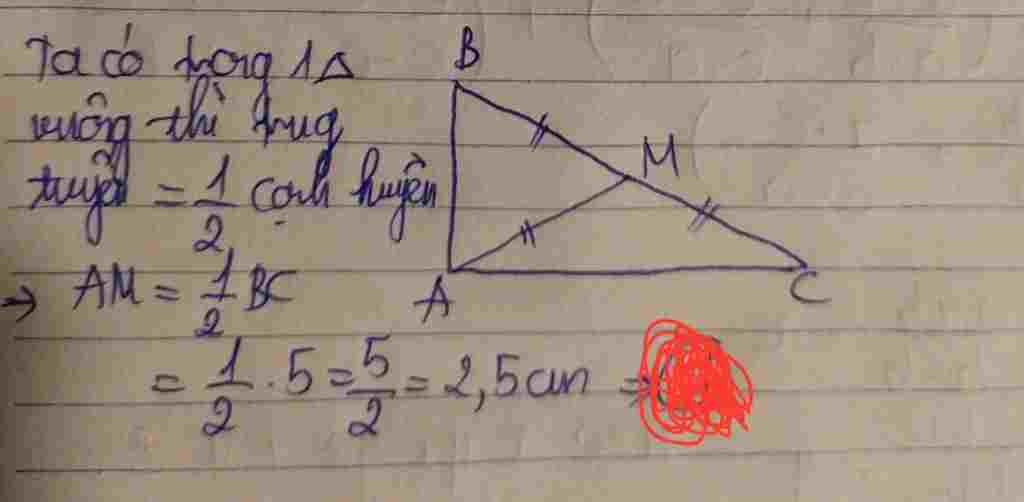 Ta có trong 1 Δ
vuông thì trug
tuyến = 1/2 cạnh huyền
→ AM = 1/2 BC
= 1/2 . 5 = 5/2 = 2,5 cm ⇒
B
M
A
C